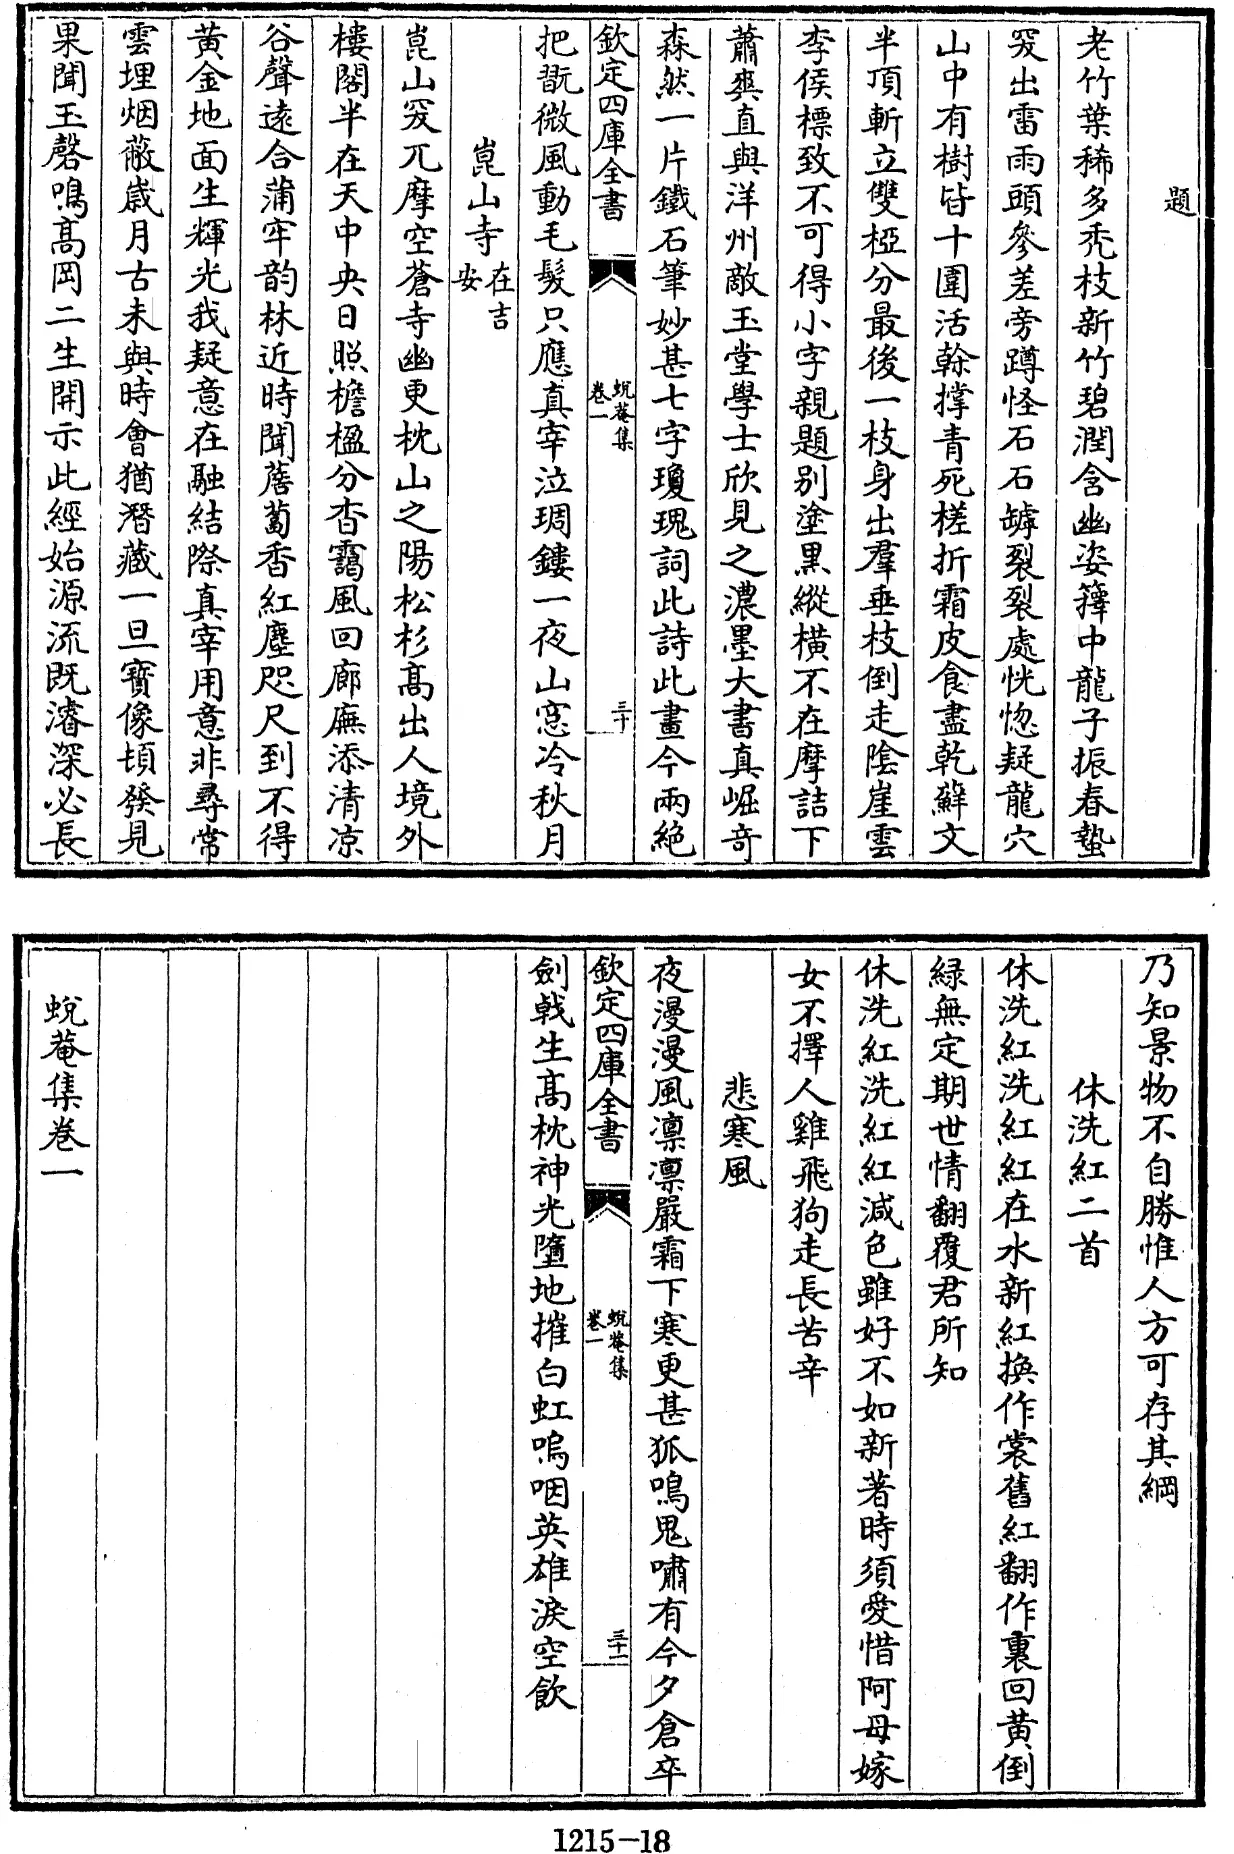 題
老竹葉稀多禿枝新竹碧潤含幽姿籜中龍子振春蟄
突出雷雨頭參差旁蹲怪石石罅裂裂處恍惚疑龍穴
山中有樹皆十圍活榦撑青死槎折霜皮食盡乾蘚文
半頂斬立雙椏分最後一枝身出羣垂枝倒走陰崖雲
李侯標致不可得小字親題别塗黒縱横不在摩詰下
蕭爽直與洋州敵玉堂學士欣見之濃墨大書真崛奇
森然一片鐵石筆妙甚七字瓊瑰詞此詩此畫今兩絶
欽定四庫全書
蛻菴集
卷一
三十
把翫微風動毛髮只應真宰泣琱鏤一夜山窓冷秋月
崑山寺在吉安
崑山突兀摩空蒼寺幽更枕山之陽松杉髙出人境外
樓閣半在天中央日照檐楹分杳靄風回廊廡添清凉
谷聲遠合蒲牢韵林近時聞薝蔔香紅塵咫尺到不得
黄金地面生輝光我疑意在融結際真宰用意非尋常
雲埋烟蔽歳月古未與時會猶潛藏一旦寳像頓發見
果聞玉磬鳴髙岡二生開示此經始源流既濬深必長
乃知景物不自勝惟人方可存其綱
休洗紅二首
休洗紅洗紅紅在水新紅換作裳舊紅翻作裏回黄倒
緑無定期世情翻覆君所知
休洗紅洗紅紅減色雖好不如新著時須愛惜阿母嫁
女不擇人雞飛狗走長苦辛
悲寒風
夜漫漫風凛凛嚴霜下寒更甚狐鳴鬼嘯有今夕倉卒
欽定四庫全書
蛻菴集
卷一
三十一
劍戟生髙枕神光墮地摧白虹嗚咽英雄淚空飲
蛻菴集卷一
1215-18